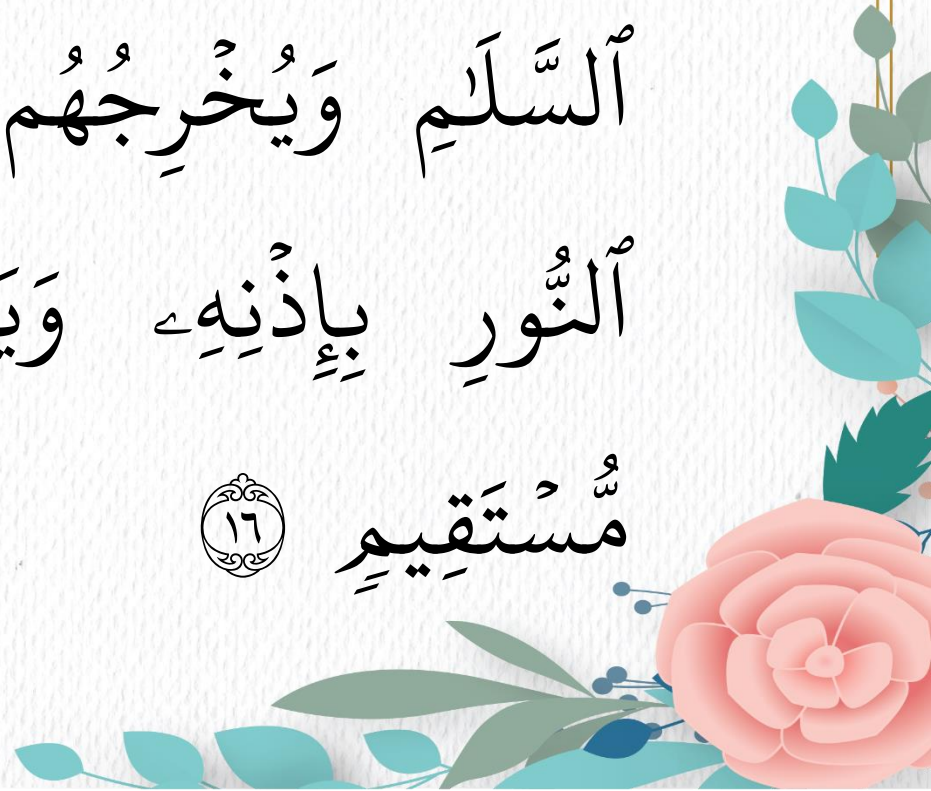 ٱلسَّلَٰمِ وَيُخۡرِجُهُم
ٱلنُّورِ بِإِذۡنِهِۦ
مُّسۡتَقِيمٖ ١٦